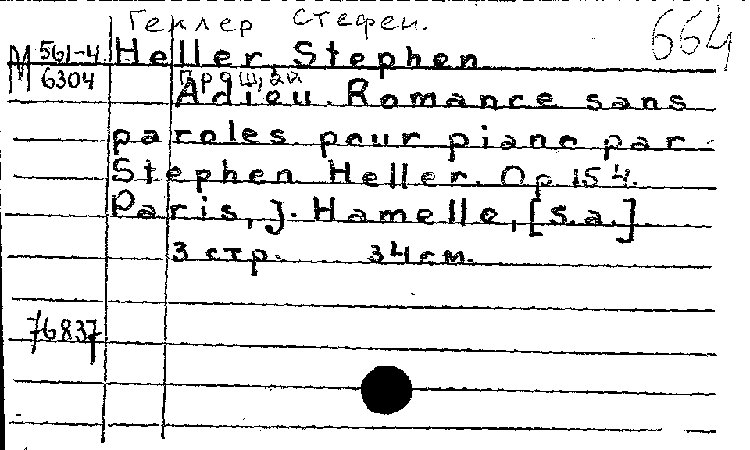 Геллер Стефен.
664
М 561-4
6304
Heller, Stephen
Прощай
Adieu. Romance sans
paroles pour piano par
Stephen Heller. Op 154.
Paris, J. Hamelle, [s.a.]
3 стр. 34 см.
76837